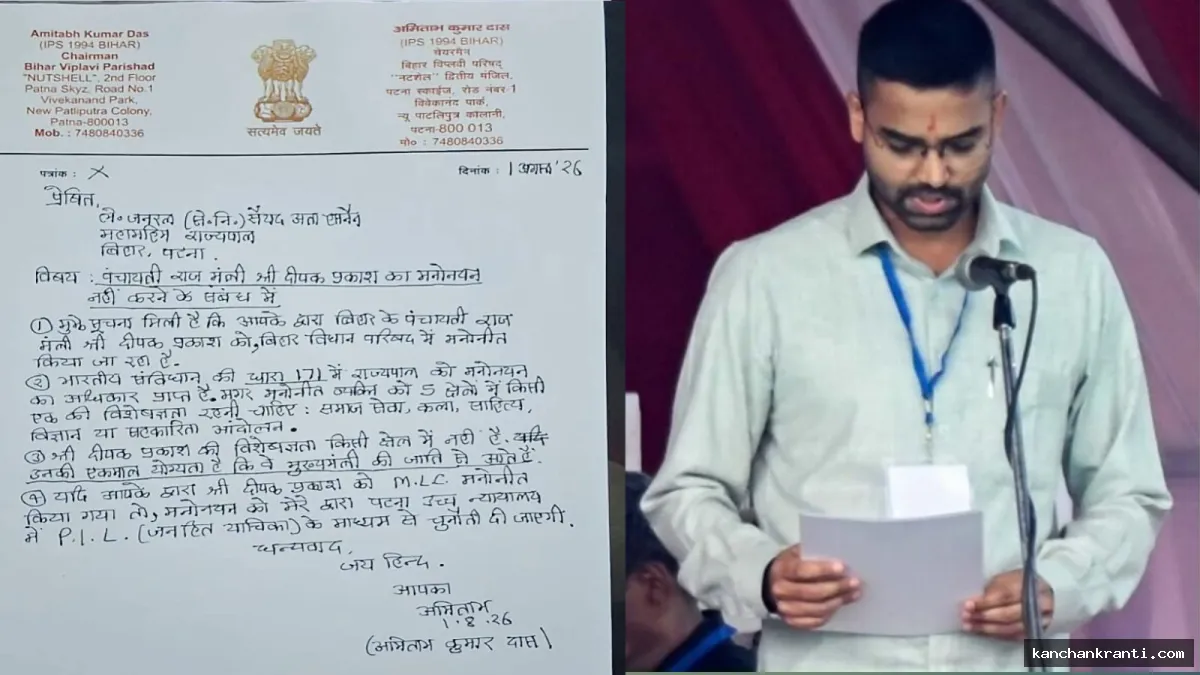 Amitabh Kumar Das
(IPS 1994 BIHAR)
Chairman
Bihar Viplavi Parishad
"NUTSHELL", 2nd Floor
Patna Skyz, Road No.1
Vivekanand Park,
New Patliputra Colony,
Patna-800013
Mob. : 7480840336
सत्यमेव जयते
अमिताभ कुमार दास
(IPS 1994 BIHAR)
चेयरमैन
बिहार विप्लवी परिषद्
"नटशेल" द्वितीय मंजिल,
पटना स्काईज, रोड नंबर 1
विवेकानंद पार्क,
न्यू पाटलिपुत्र कालोनी,
पटना-800 013
मो० : 7480840336
पत्रांक : X
दिनांक : 1 अगस्त '26
प्रेषित,
ले. जनरल (से.नि.) सैयद अता हसनैन
महामहिम राज्यपाल
बिहार, पटना.
विषय : पंचायती राज मंत्री श्री दीपक प्रकाश का मनोनयन
नहीं करने के संबंध में
① मुझे सूचना मिली है कि आपके द्वारा बिहार के पंचायती राज
मंत्री श्री दीपक प्रकाश को, बिहार विधान परिषद में मनोनीत
किया जा रहा है.
② भारतीय संविधान की धारा 171 में राज्यपाल को मनोनयन
का अधिकार प्राप्त है. मगर मनोनीत व्यक्ति को 5 क्षेत्रों में किसी
एक की विशेषज्ञता रहनी चाहिए : समाज सेवा, कला, साहित्य,
विज्ञान या सहकारिता आंदोलन.
③ श्री दीपक प्रकाश की विशेषज्ञता किसी क्षेत्र में नहीं है.
उनकी एकमात्र योग्यता है कि वे मुख्यमंत्री की जाति से आते हैं.
④ यदि आपके द्वारा श्री दीपक प्रकाश को M.L.C. मनोनीत
किया गया तो, मनोनयन को मेरे द्वारा पटना उच्च न्यायालय
में P.I.L. (जनहित याचिका) के माध्यम से चुनौती दी जाएगी.
धन्यवाद,
जय हिन्द.
आपका
अमिताभ
1.8.26
(अमिताभ कुमार दास)
kanchankranti.com